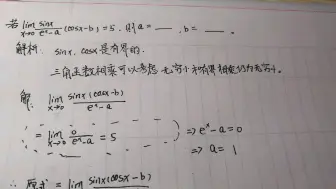 若 lim_{x→0} sinx/(e^x-a) (cosx-b)=5，则 a=____，b=____。
解析：sinx，cosx是有界的.
三角函数相乘可以考虑 无穷小和有界相乘仍为无穷小。
解：lim_{x→0} sinx(cosx-b)/(e^x-a)
= lim_{x→0} 0/(e^x-a) = 5 ⇒ e^x-a=0
⇒ a=1
∴ 原式 = lim sinx(cosx-b)